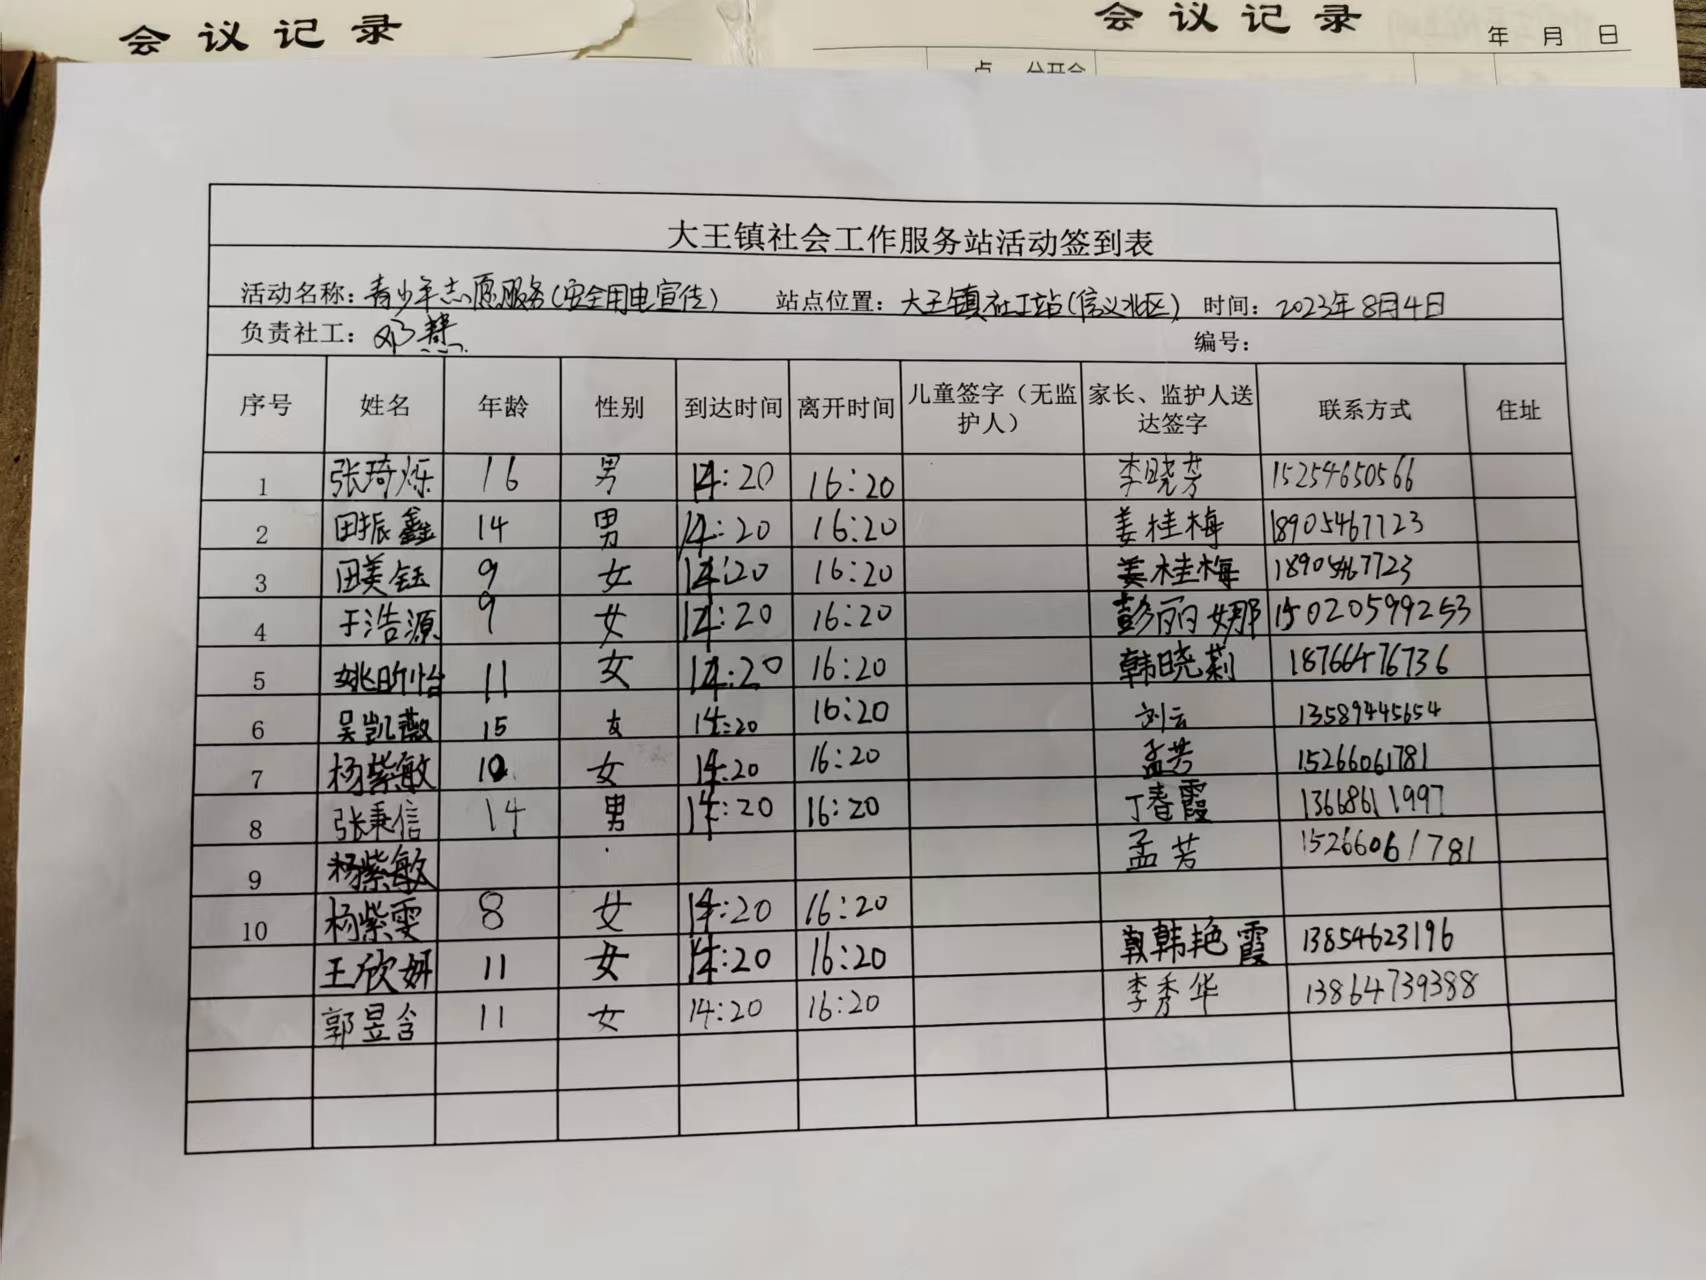 会议记录
会议记录
年 月 日
点 分开会
大王镇社会工作服务站活动签到表
活动名称：青少年志愿服务（安全用电宣传） 站点位置：大王镇社工站（信义北区） 时间：2023年8月4日
负责社工：邓慧 编号：
序号 姓名 年龄 性别 到达时间 离开时间 儿童签字（无监护人） 家长、监护人送达签字 联系方式 住址
1 张琦烁 16 男 14:20 16:20 李晓芳 15254650566
2 田振鑫 14 男 14:20 16:20 姜桂梅 18905467723
3 田美钰 9 女 14:20 16:20 姜桂梅 18905467723
4 于浩源 9 女 14:20 16:20 彭丽娜 15020599253
5 姚昕怡 11 女 14:20 16:20 韩晓莉 18766476736
6 吴凯薇 15 女 14:20 16:20 刘云 13589445654
7 杨紫敏 10 女 14:20 16:20 孟芳 15266061781
8 张秉信 14 男 14:20 16:20 丁春霞 13668611997
9 杨紫敏 孟芳 15266061781
10 杨紫雯 8 女 14:20 16:20
王欣妍 11 女 14:20 16:20 韩艳霞 13854623196
郭昱含 11 女 14:20 16:20 李秀华 13864739388